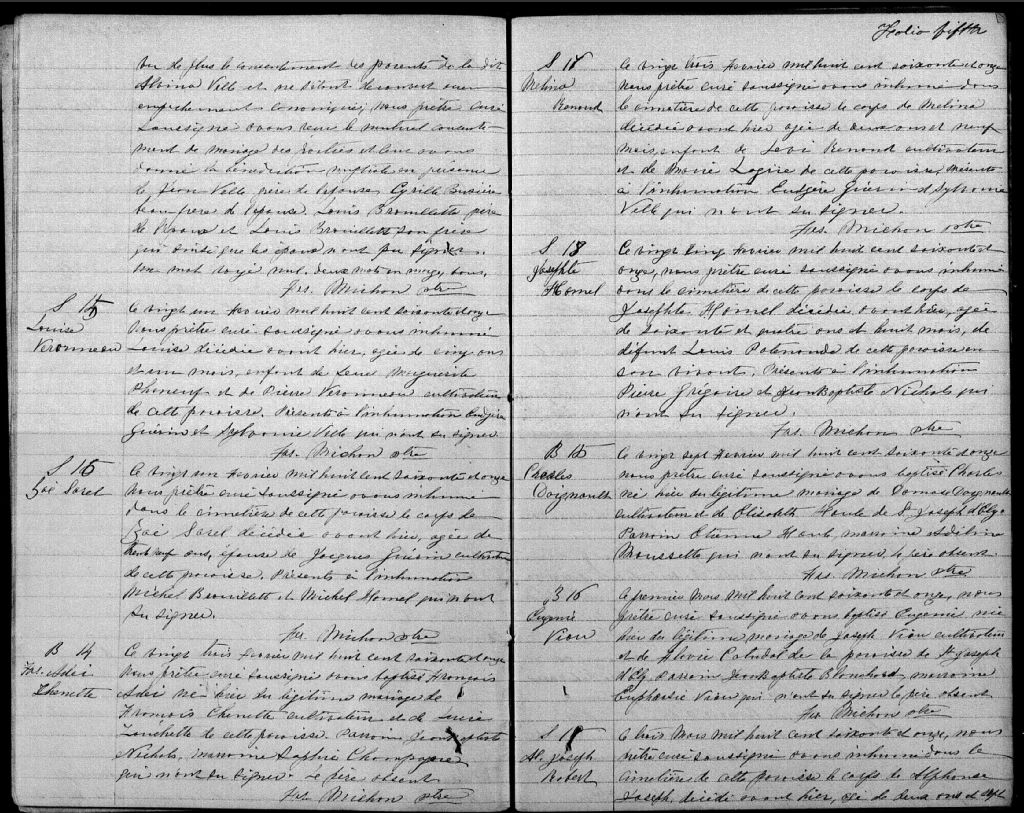 vu de plus le consentement des parents de la dite
Alvina Ville et ne s'étant découvert aucun
empêchement canonique, nous prêtre curé
soussigné avons reçu le mutuel consente-
ment de mariage des parties et leur avons
donné la bénédiction nuptiale en présence
de Jean Ville père de l'épouse, Cyrille
beau frère de l'épouse, Louis Brouillette père
de l'époux et Louis Brouillette son frère
qui ainsi que les époux n'ont su signer.
Un mot rayé nul, deux mots en marge, bons.
Frs. Michon ptre
S 15
Louise
Veronneau
Le vingt un Fevrier mil huit cent soixante et onze
Nous prêtre curé soussigné avons inhumé
Louise décédée avant hier, agée de cinq ans
et un mois, enfant de feue Marguerite
Pheneuf et de Pierre Veronneau cultivateur
de cette paroisse. Présents à l'inhumation Eudgère
Guérin et Sylvanie Ville qui n'ont su signer.
Frs. Michon ptre
S 16
Zoé Sorel
Le vingt un Fevrier mil huit cent soixante et onze
Nous prêtre curé soussigné avons inhumé
dans le cimetière de cette paroisse le corps de
Zoé Sorel décédée avant hier, agée de
trente neuf ans, épouse de Jacques Guérin cultivateur
de cette paroisse. Présents à l'inhumation
Michel Brouillette et Michel Hamel qui n'ont
su signer.
Frs. Michon ptre
B 14
Frs. Adéi
Chenette
Le vingt trois Fevrier mil huit cent soixante et onze
Nous prêtre curé soussigné avons baptisé François
Adéi né hier du légitime mariage de
François Chenette cultivateur et de Lucie
de cette paroisse. Parrain Jean Baptiste
Nichols, marraine Sophie Champagne
qui n'ont su signer. Le père absent.
Frs. Michon ptre
Folio fifth
S 17
Melina
Renaud
Le vingt trois Fevrier mil huit cent soixante et onze
Nous prêtre curé soussigné avons inhumé dans
le cimetière de cette paroisse le corps de Melina
décédée avant hier agée de deux ans et neuf
mois, enfant de Levi Renaud cultivateur
et de Marie de cette paroisse, Présents
à l'inhumation Eudgère Guérin et Sylvanie
Ville qui n'ont su signer.
Frs. Michon ptre
S 18
Josephte
Hamel
Le vingt cinq Fevrier mil huit cent soixante et
onze, nous prêtre curé soussigné avons inhumé
dans le cimetière de cette paroisse le corps de
Josephte Hamel décédée avant hier, agée
de soixante et quatre ans et huit mois, de
défunt Louis Patenaude de cette paroisse en
son vivant. Présents à l'inhumation
Pierre Grégoire et Jean Baptiste Nichols qui
n'ont su signer.
Frs. Michon ptre
B 15
Charles
Doyneault
Le vingt sept Fevrier mil huit cent soixante et onze
nous prêtre curé soussigné avons baptisé Charles
né hier du légitime mariage de Damase
cultivateur et de Elisabeth de St Joseph d'Ely
Parrain Etienne marraine Adeline
Moussette qui n'ont su signer le père absent.
Frs. Michon ptre
B 16
Eugenie
Viau
Le premier Mars mil huit cent soixante et onze, nous
prêtre curé soussigné avons baptisé Eugenie née
hier du légitime mariage de Joseph Viau cultivateur
et de de la paroisse de St Joseph
d'Ely. Parrain Jean Baptiste Blanchard, marraine
Euphrosie Viau qui n'ont su signer le père absent.
Frs. Michon ptre
S
Al. Joseph
Robert
Le trois Mars mil huit cent soixante et onze, nous
prêtre curé soussigné avons inhumé dans le
cimetière de cette paroisse le corps de Alphonse
Joseph, décédé avant hier, agé de deux ans et sept